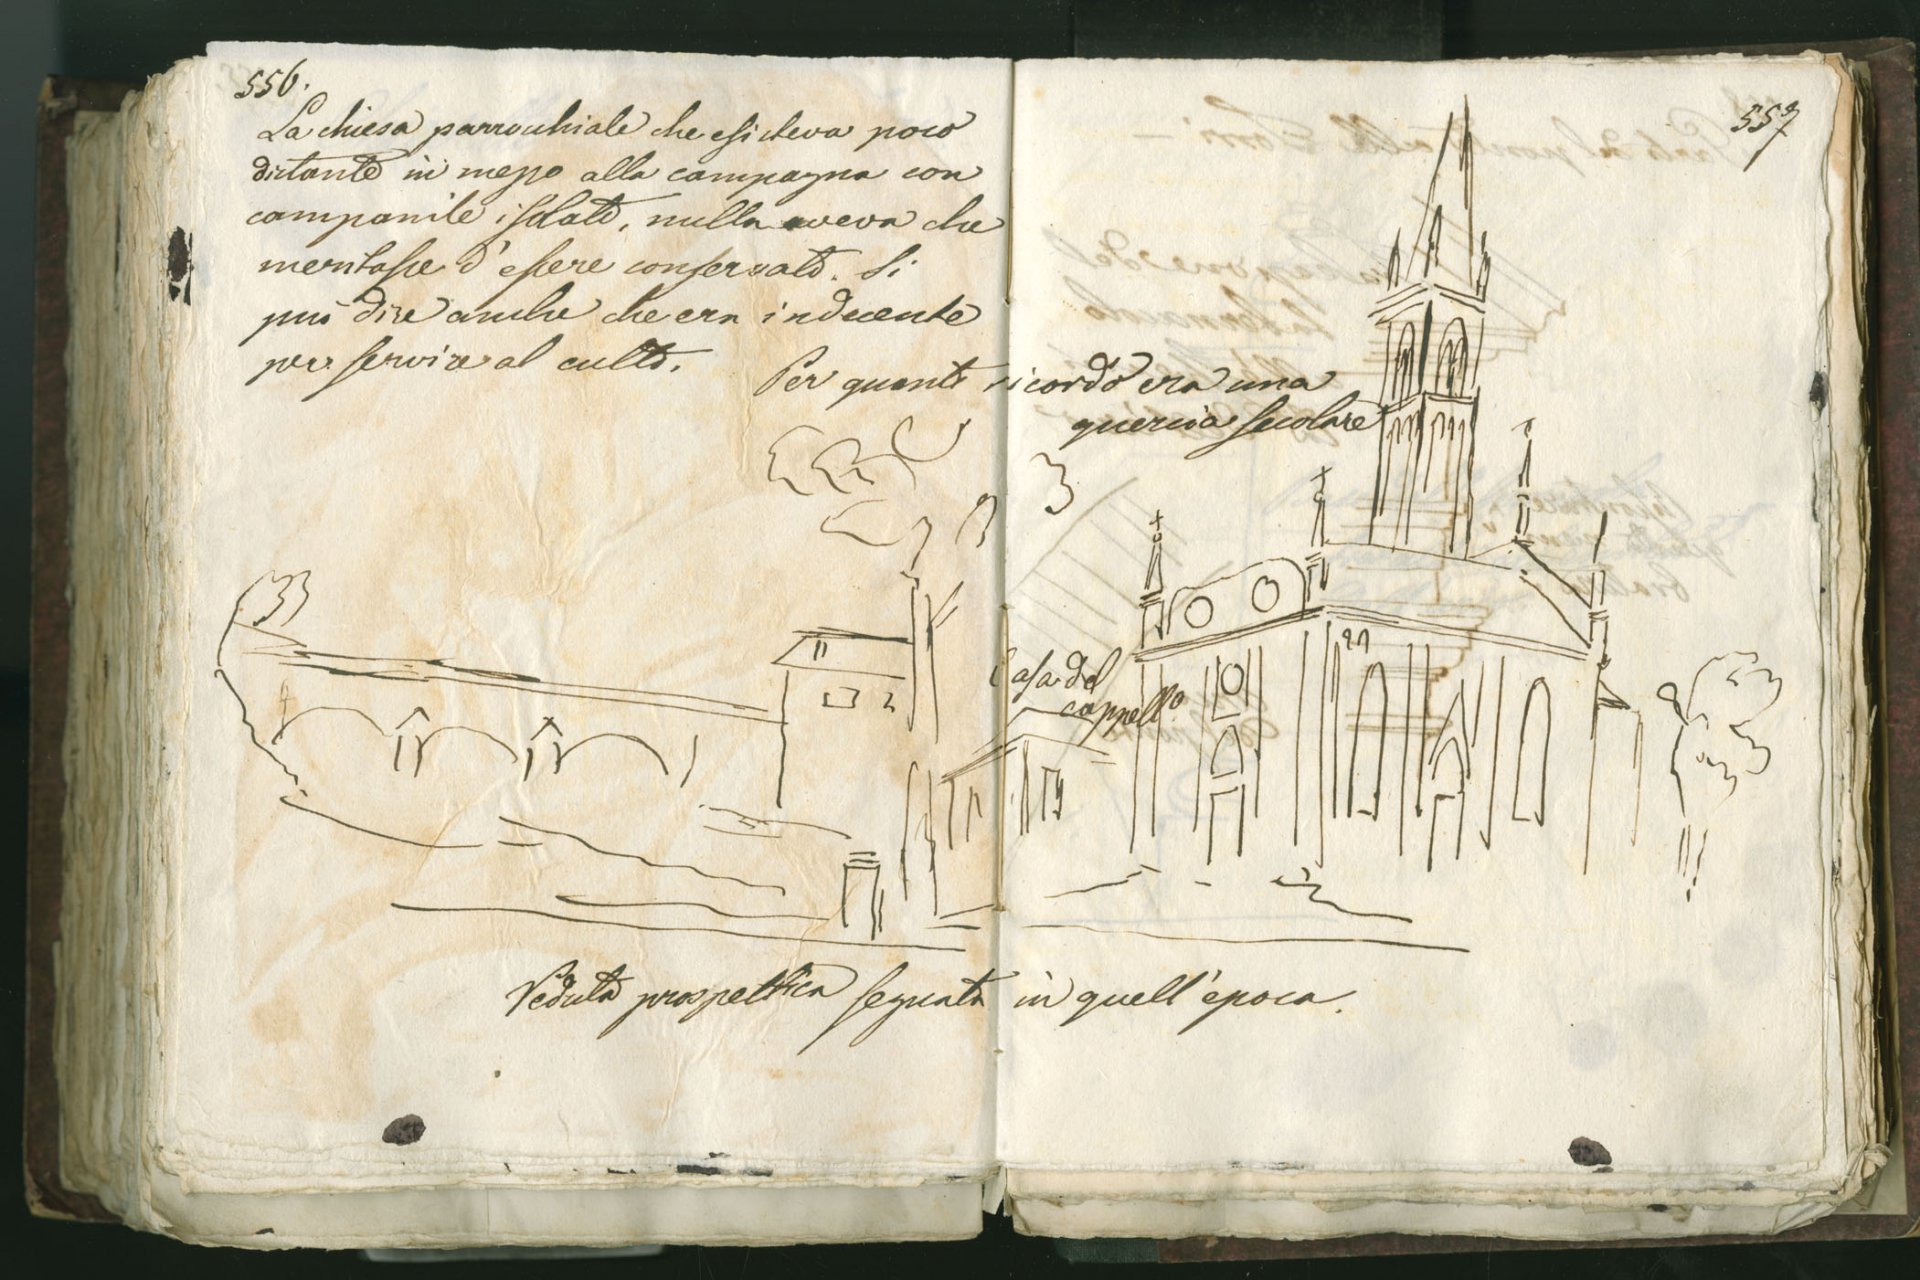 556.
La chiesa parrochiale che esisteva poco
distante in mezzo alla campagna con
campanile isolato, nulla aveva che
meritasse d'essere conservato. Si
può dire anche che era indecente
per servire al culto.
Per quanto ricordo era una
quercia secolare
Casa del
cappello
Veduta prospettica segnata in quell'epoca.
557